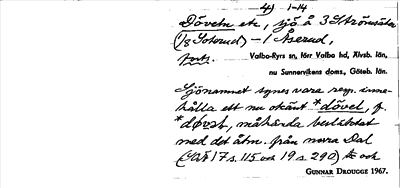 4) 1-14
Dövetn etc, sjö å 3 Strömsäter
(1/8 Soterud) – 1 Åserud,
forts. Valbo-Ryrs sn, förr Valbo hd, Älvsb. län,
nu Sunnervikens doms., Göteb. län.
Sjönamnet synes vara regn. inne-
hålla ett nu okänt *dövel, f.
*døvsl, måhända besläktat
med det åtm. från norra Dal
17 s. 115 och 19 s 290) och
GUNNAR DROUGGE 1967.